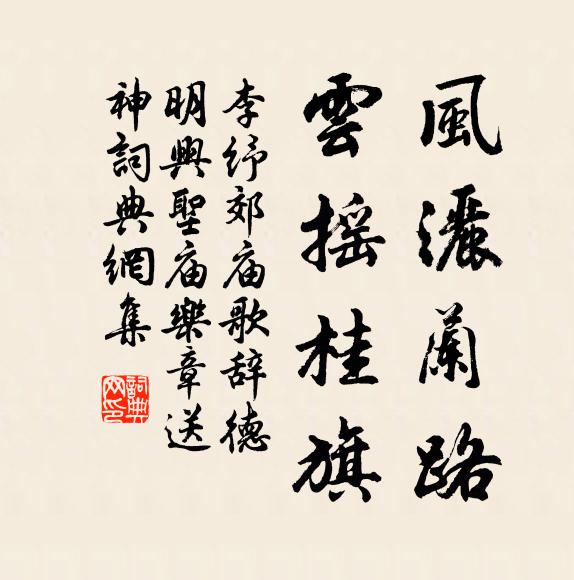 風灑蘭路
雲摇桂旗
李纾郊庙歌辞德
明興聖庙樂章送
神詞典網集
詞典
网印